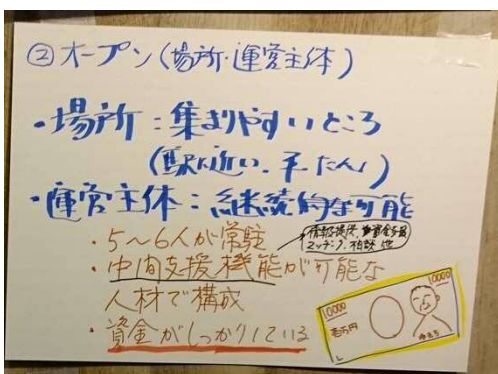 ②オープン(場所・運営主体)
・場所:集まりやすいところ
(駅に近い、平たん)
・運営主体:継続的な可能
・5〜6人が常駐
情報提供、資金支援
マッチング、相談 他
・中間支援機能が可能な
人材で構成
・資金がしっかりしている
10000
10000
壱万円
ゆきち